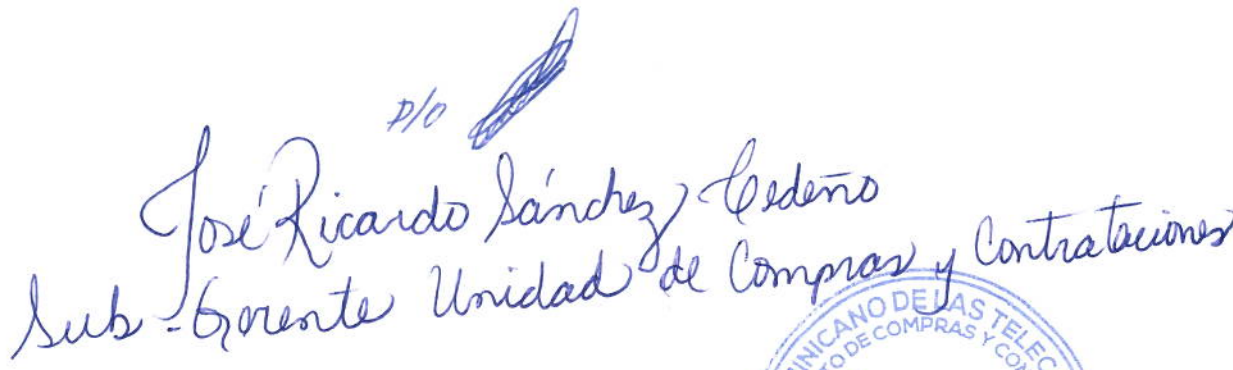 P/O
José Ricardo Sánchez Cedeño
Sub-Gerente Unidad de Compras y Contrataciones
MINICANO DE LAS TELEC
TO DE COMPRAS Y CON